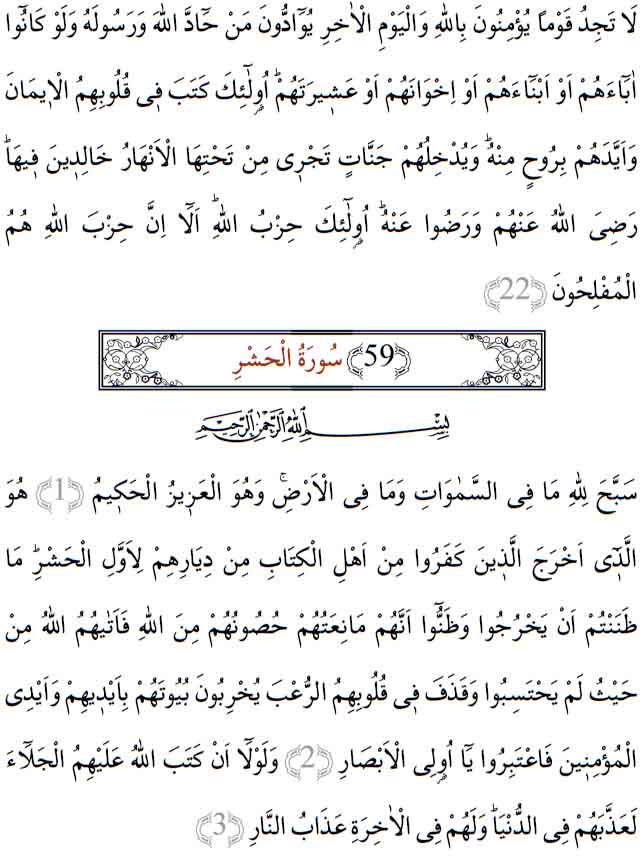 لَا تَجِدُ قَوْماً يُؤْمِنُونَ بِاللّٰهِ وَالْيَوْمِ الْاٰخِرِ يُوَٓادُّونَ مَنْ حَٓادَّ اللّٰهَ وَرَسُولَهُ وَلَوْ كَانُٓوا
اٰبَٓاءَهُمْ اَوْ اَبْنَٓاءَهُمْ اَوْ اِخْوَانَهُمْ اَوْ عَشٖيرَتَهُمْؕ اُو۬لٰٓئِكَ كَتَبَ فٖي قُلُوبِهِمُ الْاٖيمَانَ
وَاَيَّدَهُمْ بِرُوحٍ مِنْهُؕ وَيُدْخِلُهُمْ جَنَّاتٍ تَجْرٖي مِنْ تَحْتِهَا الْاَنْهَارُ خَالِدٖينَ فٖيهَاؕ
رَضِيَ اللّٰهُ عَنْهُمْ وَرَضُوا عَنْهُؕ اُو۬لٰٓئِكَ حِزْبُ اللّٰهِؕ اَلَٓا اِنَّ حِزْبَ اللّٰهِ هُمُ
الْمُفْلِحُونَ ﴿22﴾
﴿59﴾ سُورَةُ الْحَشْرِ
بِسْمِ اللّٰهِ الرَّحْمٰنِ الرَّحٖيمِ
سَبَّحَ لِلّٰهِ مَا فِي السَّمٰوَاتِ وَمَا فِي الْاَرْضِۚ وَهُوَ الْعَزٖيزُ الْحَكٖيمُ ﴿1﴾ هُوَ
الَّذٖٓي اَخْرَجَ الَّذٖينَ كَفَرُوا مِنْ اَهْلِ الْكِتَابِ مِنْ دِيَارِهِمْ لِاَوَّلِ الْحَشْرِؕ مَا
ظَنَنْتُمْ اَنْ يَخْرُجُوا وَظَنُّٓوا اَنَّهُمْ مَانِعَتُهُمْ حُصُونُهُمْ مِنَ اللّٰهِ فَاَتٰيهُمُ اللّٰهُ مِنْ
حَيْثُ لَمْ يَحْتَسِبُوا وَقَذَفَ فٖي قُلُوبِهِمُ الرُّعْبَ يُخْرِبُونَ بُيُوتَهُمْ بِاَيْدٖيهِمْ وَاَيْدِي
الْمُؤْمِنٖينَ فَاعْتَبِرُوا يَٓا اُو۬لِي الْاَبْصَارِ ﴿2﴾ وَلَوْلَٓا اَنْ كَتَبَ اللّٰهُ عَلَيْهِمُ الْجَلَٓاءَ
لَعَذَّبَهُمْ فِي الدُّنْيَاؕ وَلَهُمْ فِي الْاٰخِرَةِ عَذَابُ النَّارِ ﴿3﴾